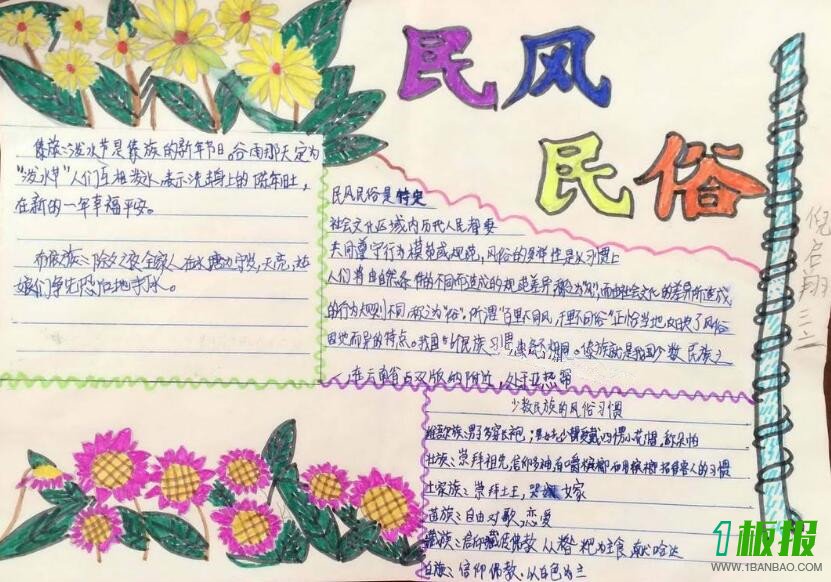 民风
民俗
傣族:泼水节是傣族的新年节日。谷雨那天定为
"泼水节"人们互相泼水,表示洗掉身上的陈年旧
在新的一年幸福平安。
布依族:除夕夜全家人在火塘边守岁,天亮,姑
娘们争先恐后地去挑水。
民风民俗是特定
社会文化区域内历代人民都要
共同遵守行为模式或规范,风俗的多样性是以习惯上
人们将由自然条件的不同而造成的规范差异称为"风",而由社会文化的差异所造成
的行为规则不同,称之为"俗"。所谓"百里不同风,千里不同俗"正恰当地反映了风俗
因地而异的特点。我国 民族习惯 不相同。傣族就是我国少数民族之
一,在云南省 双版纳附近,处于亚热带
倪启翔
三.二
少数民族的风俗习惯
维吾尔族:男子穿长袍; 四楞小花帽,称朵帕
壮族:崇拜祖先,信仰多神,有嚼槟榔 和用槟榔招待客人的习惯
土家族:崇拜土王,哭嫁
苗族:自由对歌,恋爱
藏族:信仰藏传佛教 从 糌粑为主食 献哈达
白族:信仰佛教,以白色为主
1板报
WWW.1BANBAO.COM